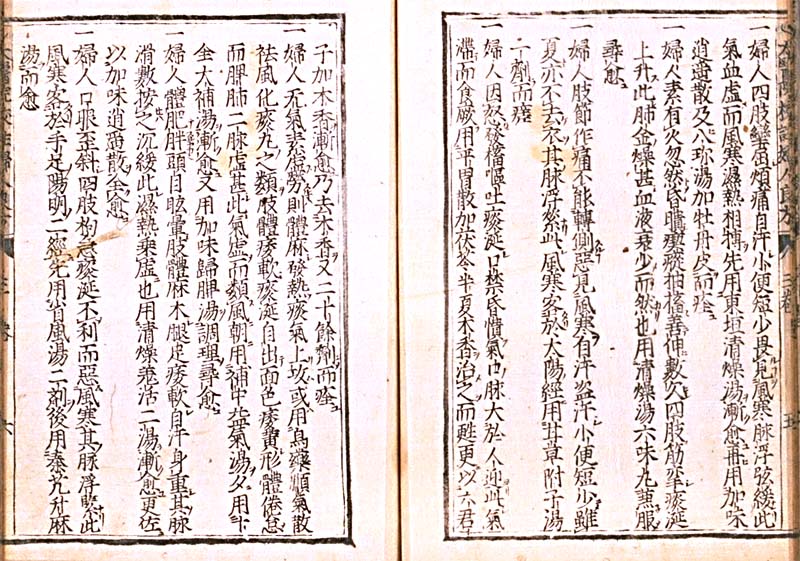 一婦人四肢攣屈煩痛自汗小便短少畏見風寒脉浮弦緩此
氣血虛而風寒濕熱相搏先用東垣清燥湯漸愈再用加味
逍遙散及八珎湯加牡丹皮而痊
一婦人素有火忽然昏瞶瘈瘲抽搐善伸數欠四肢筋攣痰涎
上升此肺金燥甚血液衰少而然也用清燥湯六味丸兼服
尋愈
一婦人肢節作痛不能轉側惡見風寒自汗盗汗小便短少雖
夏亦不去衣其脉浮緊此風寒客於太陽經用甘草附子湯
一劑而痊
一婦人因怒發搐嘔吐痰涎口禁昏憒氣口脉大於人迎此氣
滯而食厥用平胃散加茯苓半夏木香治之而甦更以六君
子加木香漸愈乃去木香又二十餘劑而痊
一婦人元氣素虛勞則體麻發熱痰氣上攻或用烏藥順氣散
祛風化痰丸之類肢體痿軟痰涎自出面色痿黄形體倦怠
而脾肺二脉虛甚此氣虛而類風朝用補中益氣湯夕用十
全大補湯漸愈又用加味歸脾湯調理尋愈
一婦人體肥胖頭目眩暈肢體麻木腿足痿軟自汗身重其脉
滑數按之沉緩此濕熱乘虛也用清燥羗活二湯漸愈更佐
以加味逍遙散全愈
一婦人口眼歪斜四肢拘急痰涎不利而惡風寒其脉浮緊此
風寒客於手足陽明二經先用省風湯二劑後用秦艽升麻
湯而愈